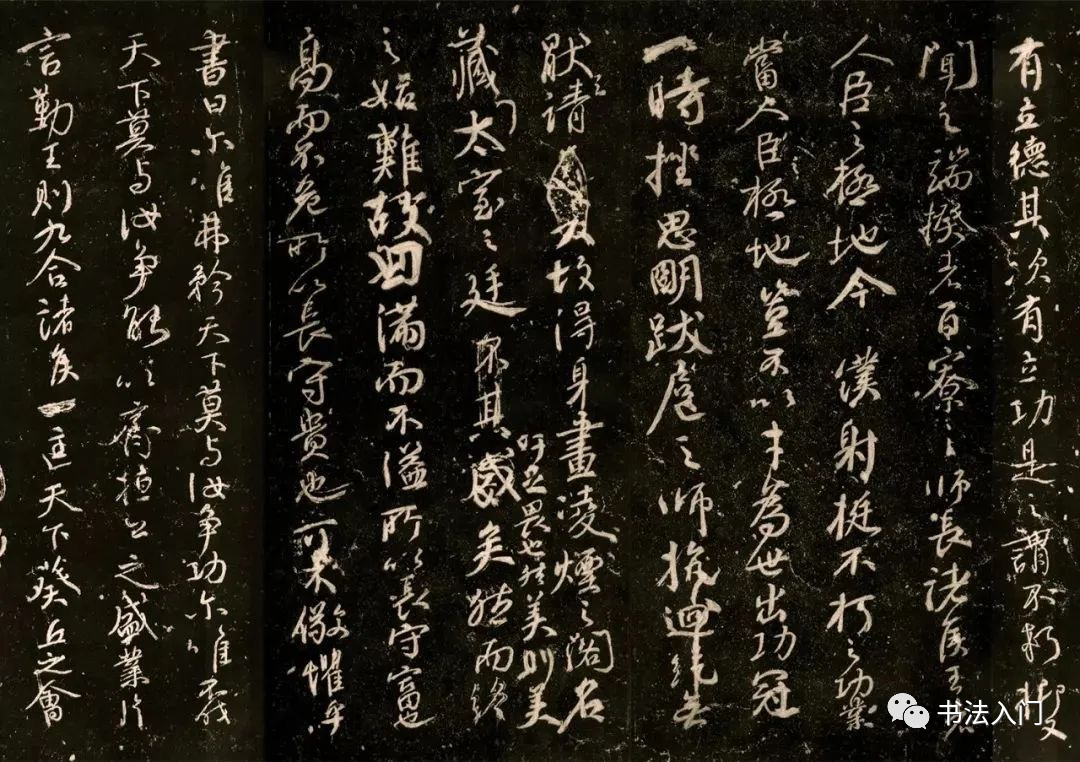 有立德其次有立功是之謂不朽抑又
聞之端揆者百寮之師長諸侯王者
人臣之極地今僕射挺不朽之功業
當人臣極地豈不以才為世出功冠
一時挫思明跋扈之師抗迴紇無
厭之請故得身畫凌煙之閣名
藏太室之廷
吁足畏也然美則美
矣然而終
之始難故曰滿而不溢所以長守富也
高而不危所以長守貴也可不儆懼乎
書曰尔唯弗矜天下莫与汝争功尔唯弗伐
天下莫与汝争能以齊桓公之盛業片
言勤王則九合諸侯一匡天下葵丘之會
书法入门